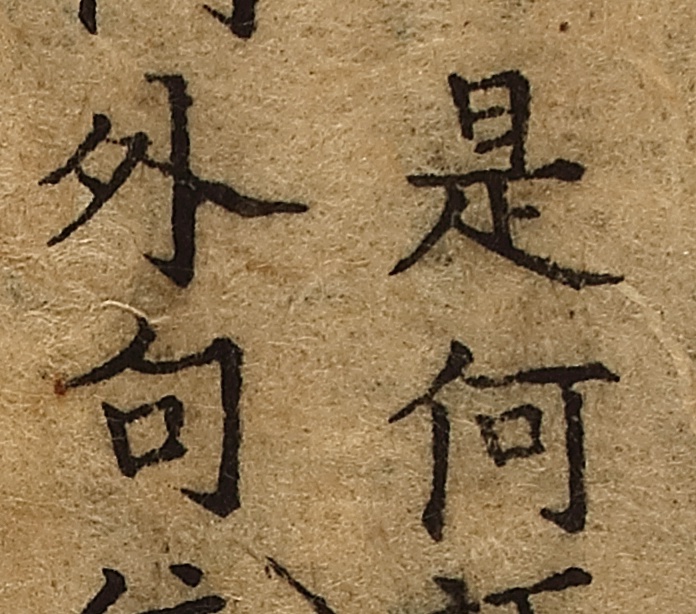 是何
外句